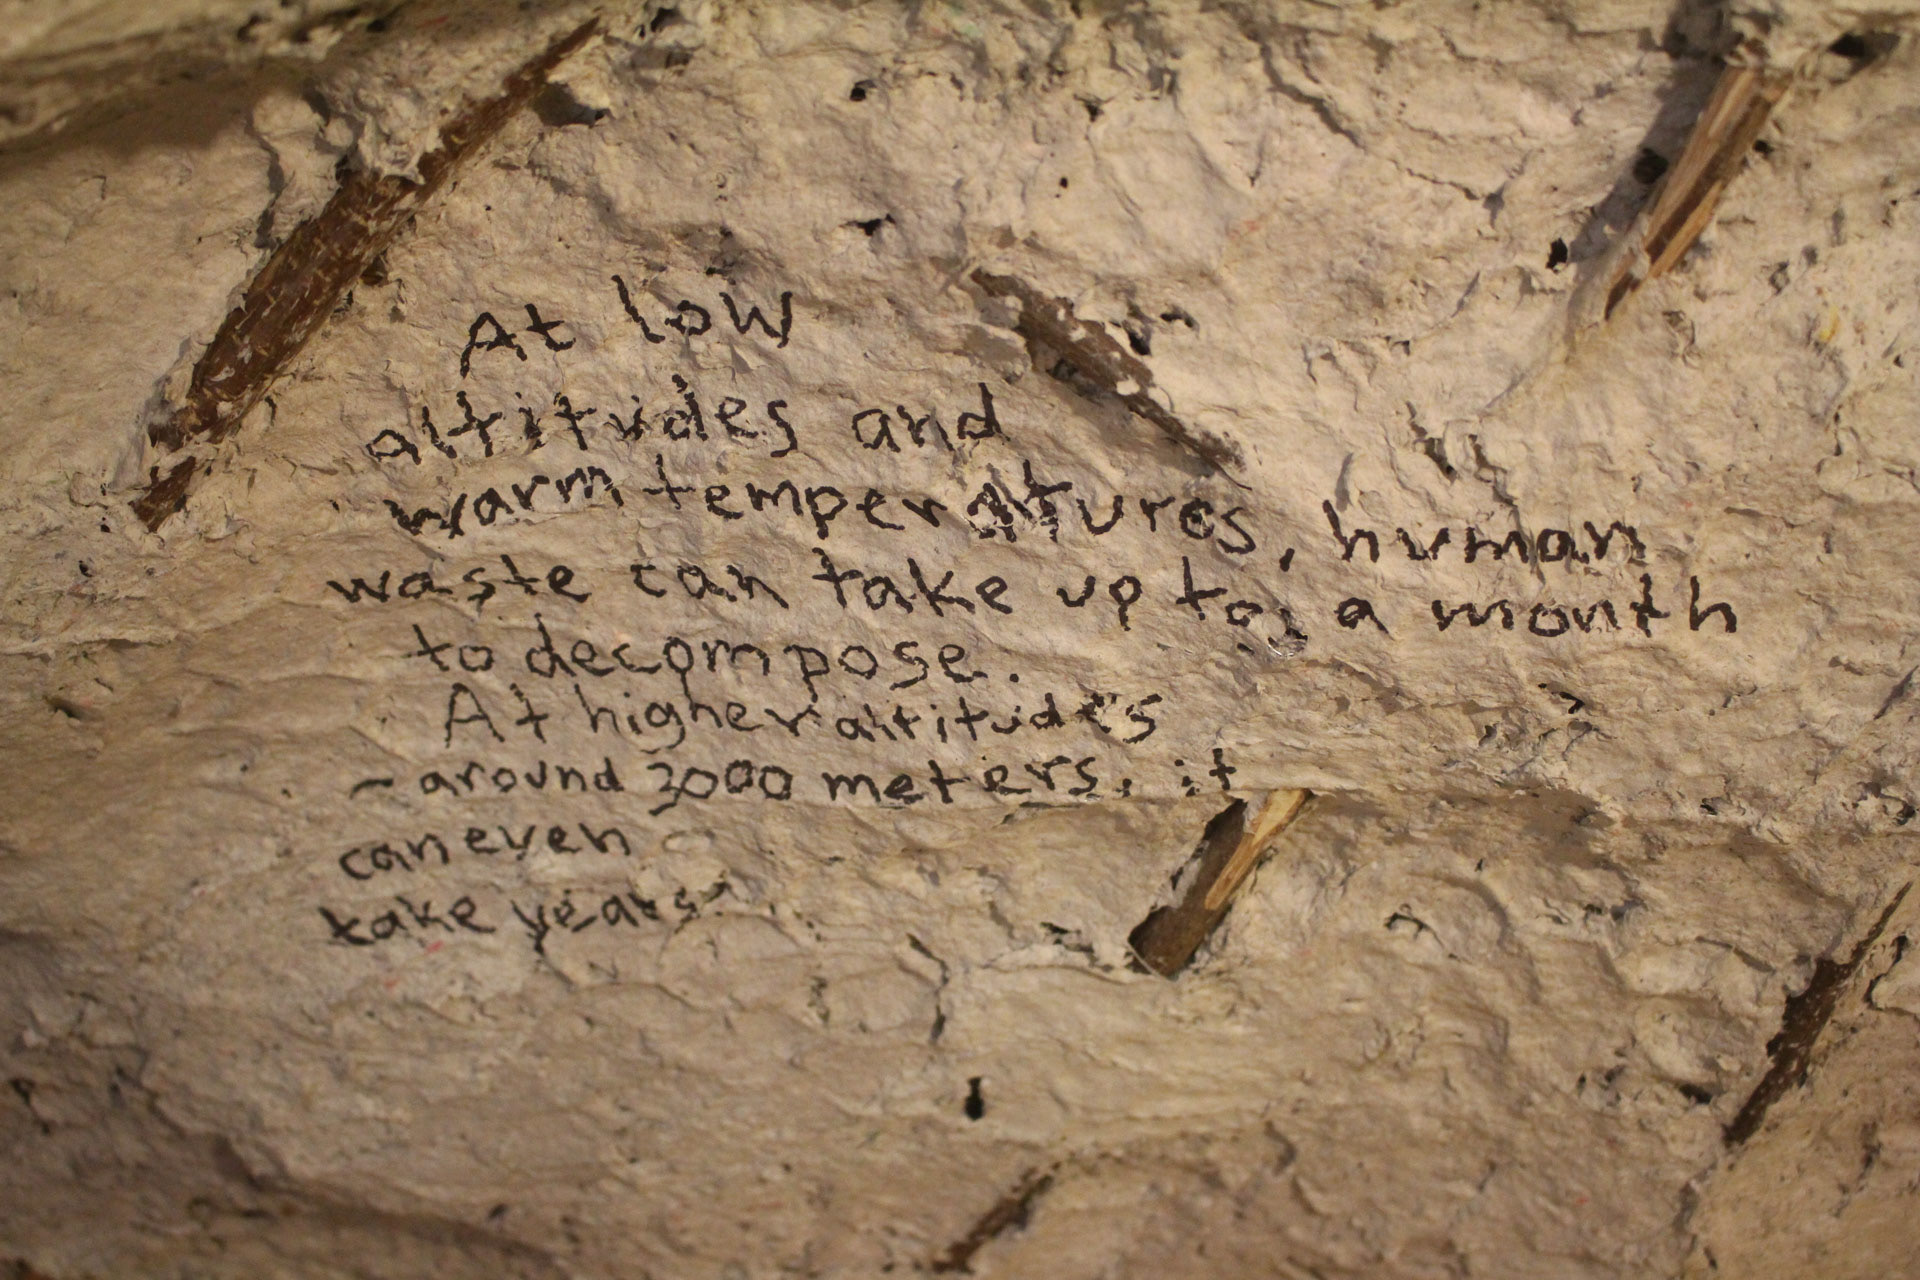 At low
altitudes and
warm temperatures, human
waste can take up to a month
to decompose.
At higher altitudes
- around 3000 meters, it
can even
take years.